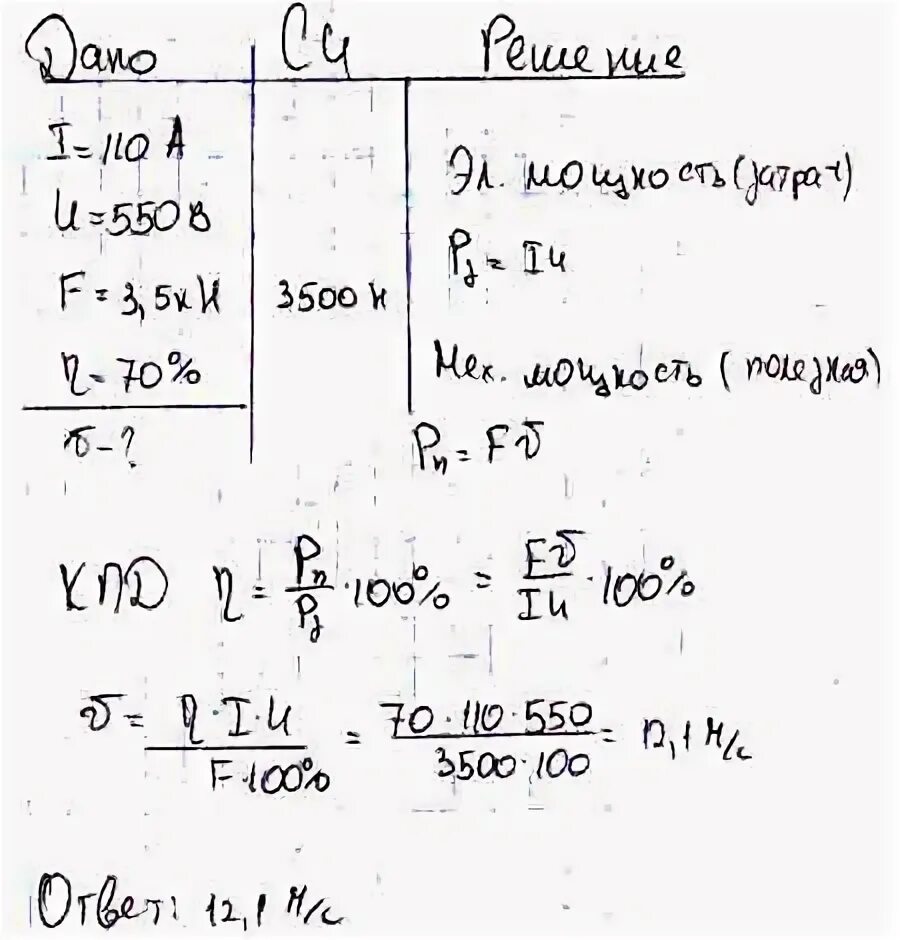 Дано СИ Решение
I = 110 А
U = 550 В
F = 3,5 кН 3500 Н
η = 70%
v - ?
Эл. мощность (затрач)
Pз = IU
Мех. мощность (полезная)
Pп = Fv
КПД η = Pп/Pз · 100% = Fv/IU · 100%
v = η·I·U / F·100% = 70·110·550 / 3500·100 = 12,1 м/с
Ответ: 12,1 м/с